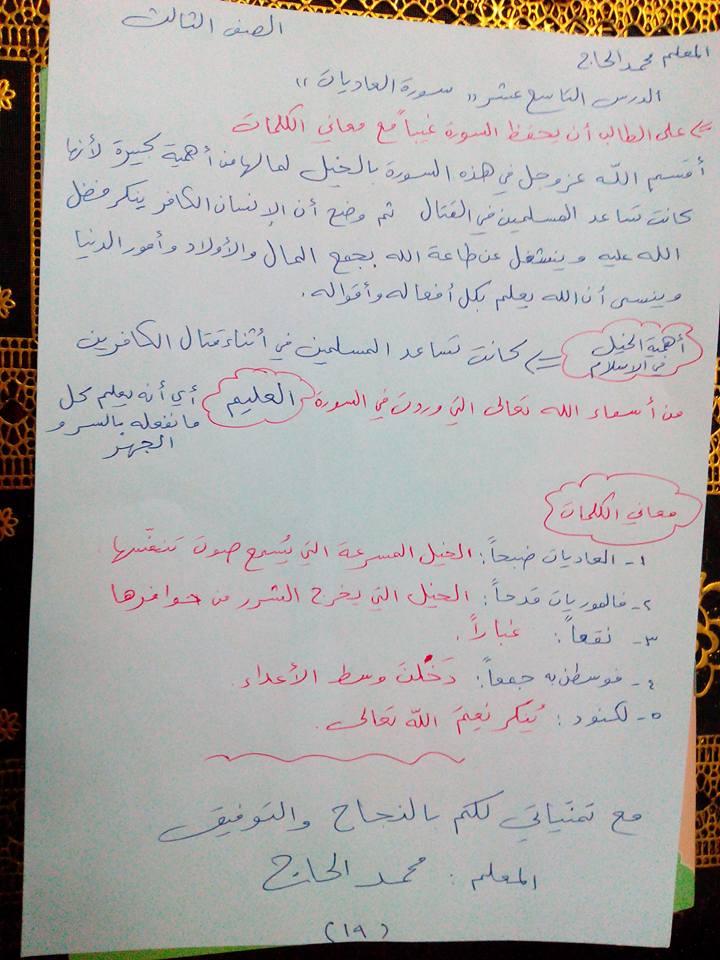 الصف الثالث
المعلم محمد الحاج
الدرس التاسع عشر "سورة العاديات"
=> على الطالب أن يحفظ السورة غيباً مع معاني الكلمات
أقسم الله عز وجل في هذه السورة بالخيل لما لها من أهمية كبيرة لأنها
كانت تساعد المسلمين في القتال ثم وضح أن الإنسان الكافر ينكر فضل
الله عليه وينشغل عن طاعة الله بجمع المال والأولاد وأمور الدنيا
وينسى أن الله يعلم بكل أفعاله وأقواله.
أهمية الخيل في الاسلام => كانت تساعد المسلمين في أثناء قتال الكافرين
من أسماء الله تعالى التي وردت في السورة العليم أي أنه يعلم كل
ما نفعله بالسر و
الجهر
معاني الكلمات
١- العاديات ضبحاً: الخيل المسرعة التي يُسمع صوت تنفّسها
٢- فالموريات قدحاً: الخيل التي يخرج الشرر من حوافرها
٣- نقعاً: غباراً.
٤- فوسطن به جمعاً: دَخَلْنَ وسط الأعداء.
٥- لكنود: يُنكر نِعَمَ الله تعالى.
مع تمنياتي لكم بالنجاح والتوفيق
المعلم: محمد الحاج
(١٩)